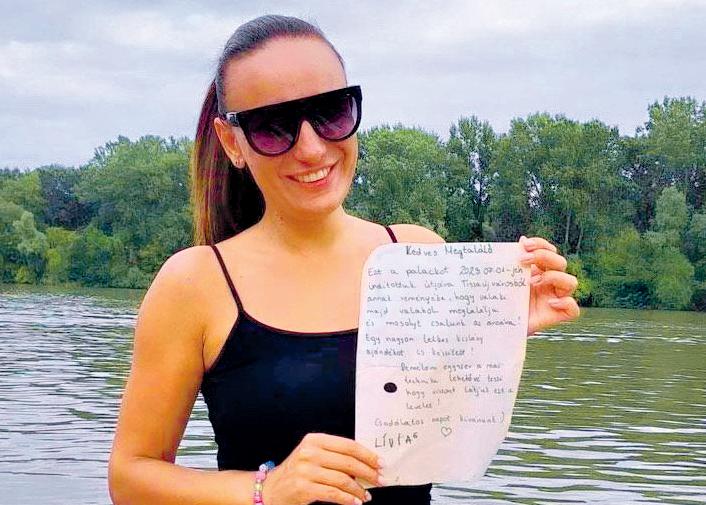 Kedves Megtaláló
Ezt a palackot 2023.07.01-jén
indítottuk útjára Tiszaújvárosból
annak reményébe, hogy valaki
majd valahol megtalálja
és mosolyt csalunk az arcaira!
Egy nagyon lelkes kislány
ajándékot is készített!
Remélem egyszer a mai
technika lehetővé teszi
hogy viszont látjuk ezt a
levelet!
Csodálatos napot kívánunk!
LíVIA 6